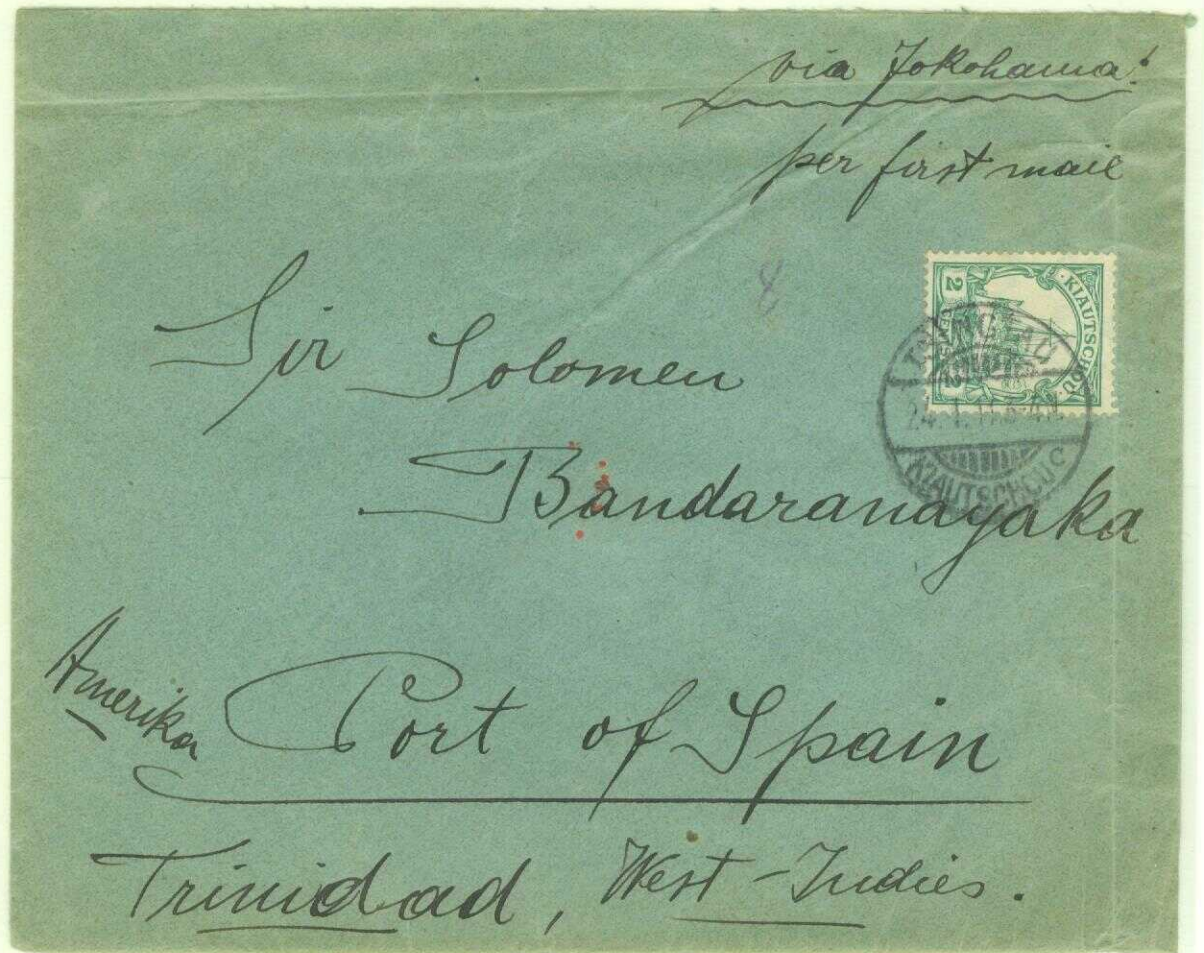 via Jokohama!
per first mail
8
KIAUTSCHOU
2 2
TSINGTAU
24.1.11.
KIAUTSCHOU C
Sir Solomen
Bandaranayaka
Amerika
Port of Spain
Trinidad, West-Indies.